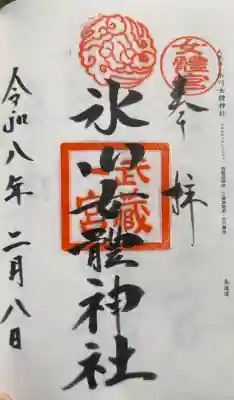 女體宮
奉拝
氷川女體神社
武藏
一宮
令和八年 二月八日